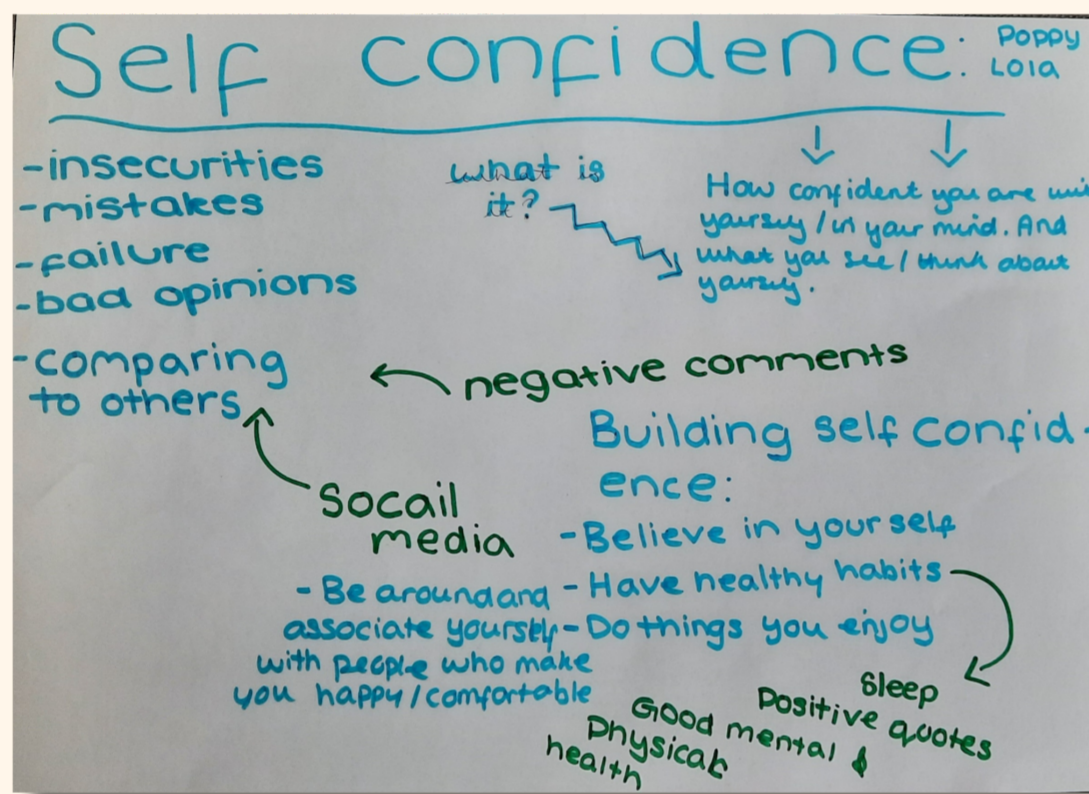 Self confidence:
Poppy
Lola
-insecurities
-mistakes
-failure
-bad opinions
-comparing
to others
what is
it?
How confident you are wi
yourself/in your mind. And
what you see/think about
yourself.
negative comments
Socail
media
Building self confid-
ence:
-Believe in yourself
-Have healthy habits
-Do things you enjoy
-Be around and
associate yourself
with people who make
you happy/comfortable
Sleep
Positive quotes
Good mental &
Physical
health